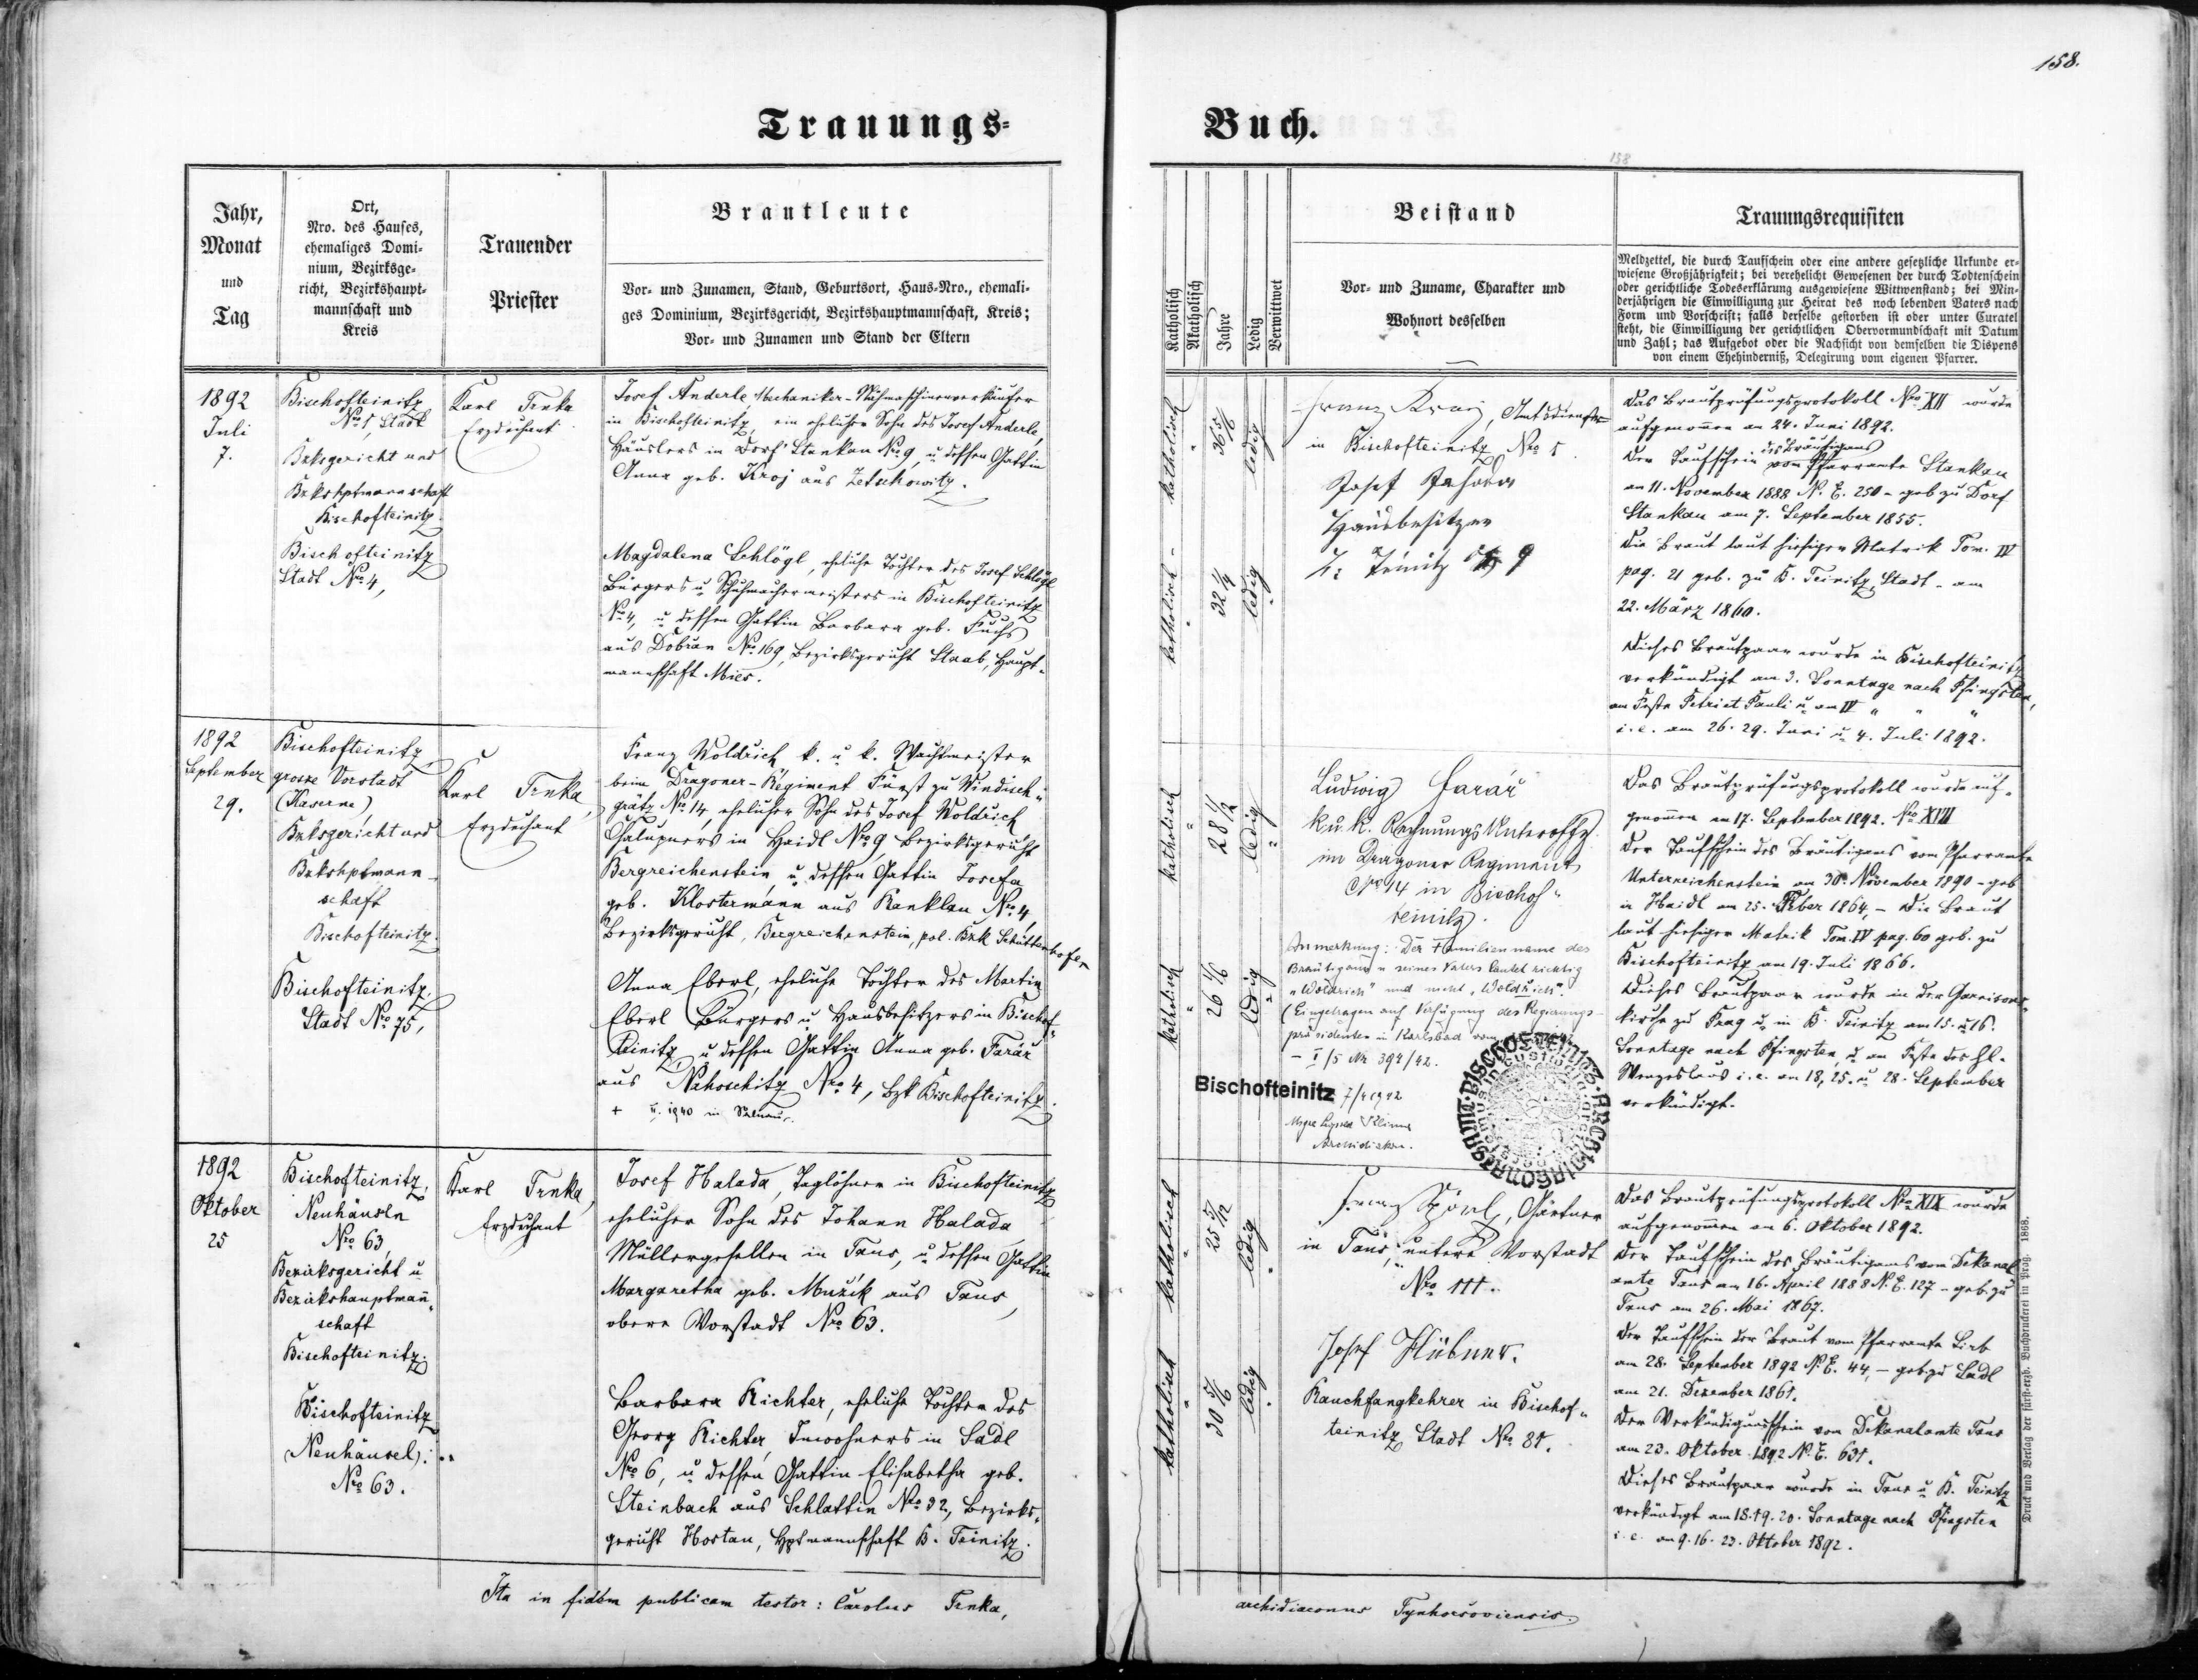 158.
Trauungs-
Buch.
158
Jahr,
Monat
und
Tag
Ort,
Nro. des Hauses,
ehemaliges Domi-
nium, Bezirksge-
richt, Bezirkshaupt-
mannschaft und
Kreis
Trauender
Priester
Brautleute
Vor- und Zunamen, Stand, Geburtsort, Haus-Nro., ehemali-
ges Dominium, Bezirksgericht, Bezirkshauptmannschaft, Kreis;
Vor- und Zunamen und Stand der Eltern
Katholisch
Akatholisch
Jahre
Ledig
Verwittwet
Beistand
Vor- und Zuname, Charakter und
Wohnort desselben
Trauungsrequisiten
Meldzettel, die durch Taufschein oder eine andere gesetzliche Urkunde er-
wiesene Großjährigkeit; bei verehelicht Gewesenen der durch Todtenschein
oder gerichtliche Todeserklärung ausgewiesene Wittwenstand; bei Min-
derjährigen die Einwilligung zur Heirat des noch lebenden Vaters nach
Form und Vorschrift; falls derselbe gestorben ist oder unter Curatel
steht, die Einwilligung der gerichtlichen Obervormundschaft mit Datum
und Zahl; das Aufgebot oder die Nachsicht von demselben die Dispens
von einem Ehehinderniß, Delegirung vom eigenen Pfarrer.
1892
Juli
7.
Bischofteinitz
No 1, Stadt
Bzksgericht und
Bzkshptmannschaft
Bischofteinitz.
Bischofteinitz
Stadt No 4,
Karl Trnka
Erzdechant
Josef Anderle, Mechaniker-Nähmaschinenverkäufer
in Bischofteinitz, ein ehelicher Sohn des Josef Anderle,
Häuslers in Dorf Stankau No 9, u dessen Gattin
Anna geb. Kroj aus Zetschowitz.
Magdalena Schlögl, eheliche Tochter des Josef Schlögl
Bürgers u Schuhmachermeisters in Bischofteinitz
No 4, u dessen Gattin Barbara geb. Fuchs
aus Dobřan No 169, Bezirksgericht Staab, Haupt-
mannschaft Mies.
katholisch
36 5/6
ledig
katholisch
32 1/4
ledig
Franz Kraj, Amtsdiener
in Bischofteinitz No 1
Josef
Hausbesitzer
Teinitz 9
Das Brautprüfungsprotokoll No XII wurde
aufgenommen am 24. Juni 1892.
des Bräutigams
Der Taufschein vom Pfarramte Stankau
am 11. November 1888 N. E. 250 - geb zu Dorf
Stankau am 7. September 1855.
Die Braut laut hiesiger Matrik Tom. IV
pag. 21 geb. zu B. Teinitz, Stadt - am
22. März 1860.
Dieses Brautpaar wurde in Bischofteinitz
verkündigt am 3. Sonntage nach Pfingsten,
am Feste Petri et Pauli u am IV " " "
i.e. am 26. 29. Juni u 4. Juli 1892.
1892
September
29.
Bischofteinitz,
grosse Vorstadt
(Kaserne)
Bzksgericht und
Bzkshptmann-
schaft
Bischofteinitz.
Bischofteinitz.
Stadt No 75,
Karl Trnka,
Erzdechant
Franz Woldřich k. u k. Wachtmeister
beim Dragoner-Regiment Fürst zu Windisch-
grätz No 14, ehelicher Sohn des Josef Woldřich
Chalupners in Haidl No 9, Bezirksgericht
Bergreichenstein, u dessen Gattin Josefa
geb. Klostermann aus Ranklau No 4,
Bezirksgericht Bergreichenstein, pol. Bzk Schüttenhofen
Anna Eberl, eheliche Tochter des Martin
Eberl Bürgers u Hausbesitzers in Bischof-
teinitz u dessen Gattin Anna geb. Farář
aus Nahoschitz No 4, Bzk Bischofteinitz.
katholisch
28 1/2
ledig
katholisch
26 1/6
ledig
Ludwig Farář
k.u.k. Rechnungs Unteroffz.
im Dragoner Regiment
No 14 in Bischof-
teinitz.
Anmerkung: Der Familienname des
Bräutigams u seines Vaters lautet richtig
"Woldrich" und nicht "Woldřich".
(Eingetragen auf Verfügung des Regierungs-
präsidenten in Karlsbad vom
- I/5 Nr 394/42.
Bischofteinitz 7/4 1942
Das Brautprüfungsprotokoll wurde auf-
genommen am 17. September 1892. No XVIII
Der Taufschein des Bräutigams vom Pfarramte
Unterreichenstein am 30. November 1890 - geb
in Haidl am 25. Feber 1864, - Die Braut
laut hiesiger Matrik Tom. IV pag. 60 geb. zu
Bischofteinitz am 19. Juli 1866.
Dieses Brautpaar wurde in der Garnisons-
kirche zu Prag u. in B. Teinitz am 15. u 16.
Sonntage nach Pfingsten u am Feste des hl.
Wenzeslaus i.e. am 18, 25. u 28. September
verkündigt.
1892
Oktober
25
Bischofteinitz,
Neuhäuseln
No 63,
Bezirksgericht u
Bezirkshauptmann-
schaft
Bischofteinitz.
Bischofteinitz
(Neuhäusel):
No 63.
Karl Trnka,
Erzdechant
Josef Halada, Taglöhner in Bischofteinitz
ehelicher Sohn des Johann Halada
Müllergesellen in Taus, u dessen Gattin
Margaretha geb. Mužík aus Taus,
obere Vorstadt No 63.
Barbara Richter, eheliche Tochter des
Georg Richter, Inwohners in Sadl
No 6, u dessen Gattin Elisabetha geb.
Steinbach aus Schlattin No 32, Bezirks-
gericht Hostau, Hptmannschaft B. Teinitz.
katholisch
25 5/12
ledig
katholisch
30 5/6
ledig
Franz , Gärtner
in Taus, untere Vorstadt
No 111.
Josef Hübner.
Rauchfangkehrer in Bischof-
teinitz Stadt No 81.
Das Brautprüfungsprotokoll No XIX wurde
aufgenommen am 6. Oktober 1892.
Der Taufschein des Bräutigams vom Dekanal
amte Taus am 16. April 1888 N. E. 127 - geb. zu
Taus am 26. Mai 1867.
Der Taufschein der Braut vom Pfarramte
am 28. September 1892 N. E. 44, - geb. zu Sadl
am 21. Dezember 1861.
Der Verkündigungsschein vom Dekanalamte Taus
am 23. Oktober 1892 N. E. 631.
Dieses Brautpaar wurde in Taus u B. Teinitz
verkündigt am 18. 19. 20. Sonntage nach Pfingsten
i.e. am 9. 16. 23. Oktober 1892.
Ita in fidem publicam testor: Carolus Trnka,
archidiaconus Tynhorsoviensis.
Druck und Verlag der fürst-erzb. Buchdruckerei in Prag. 1868.